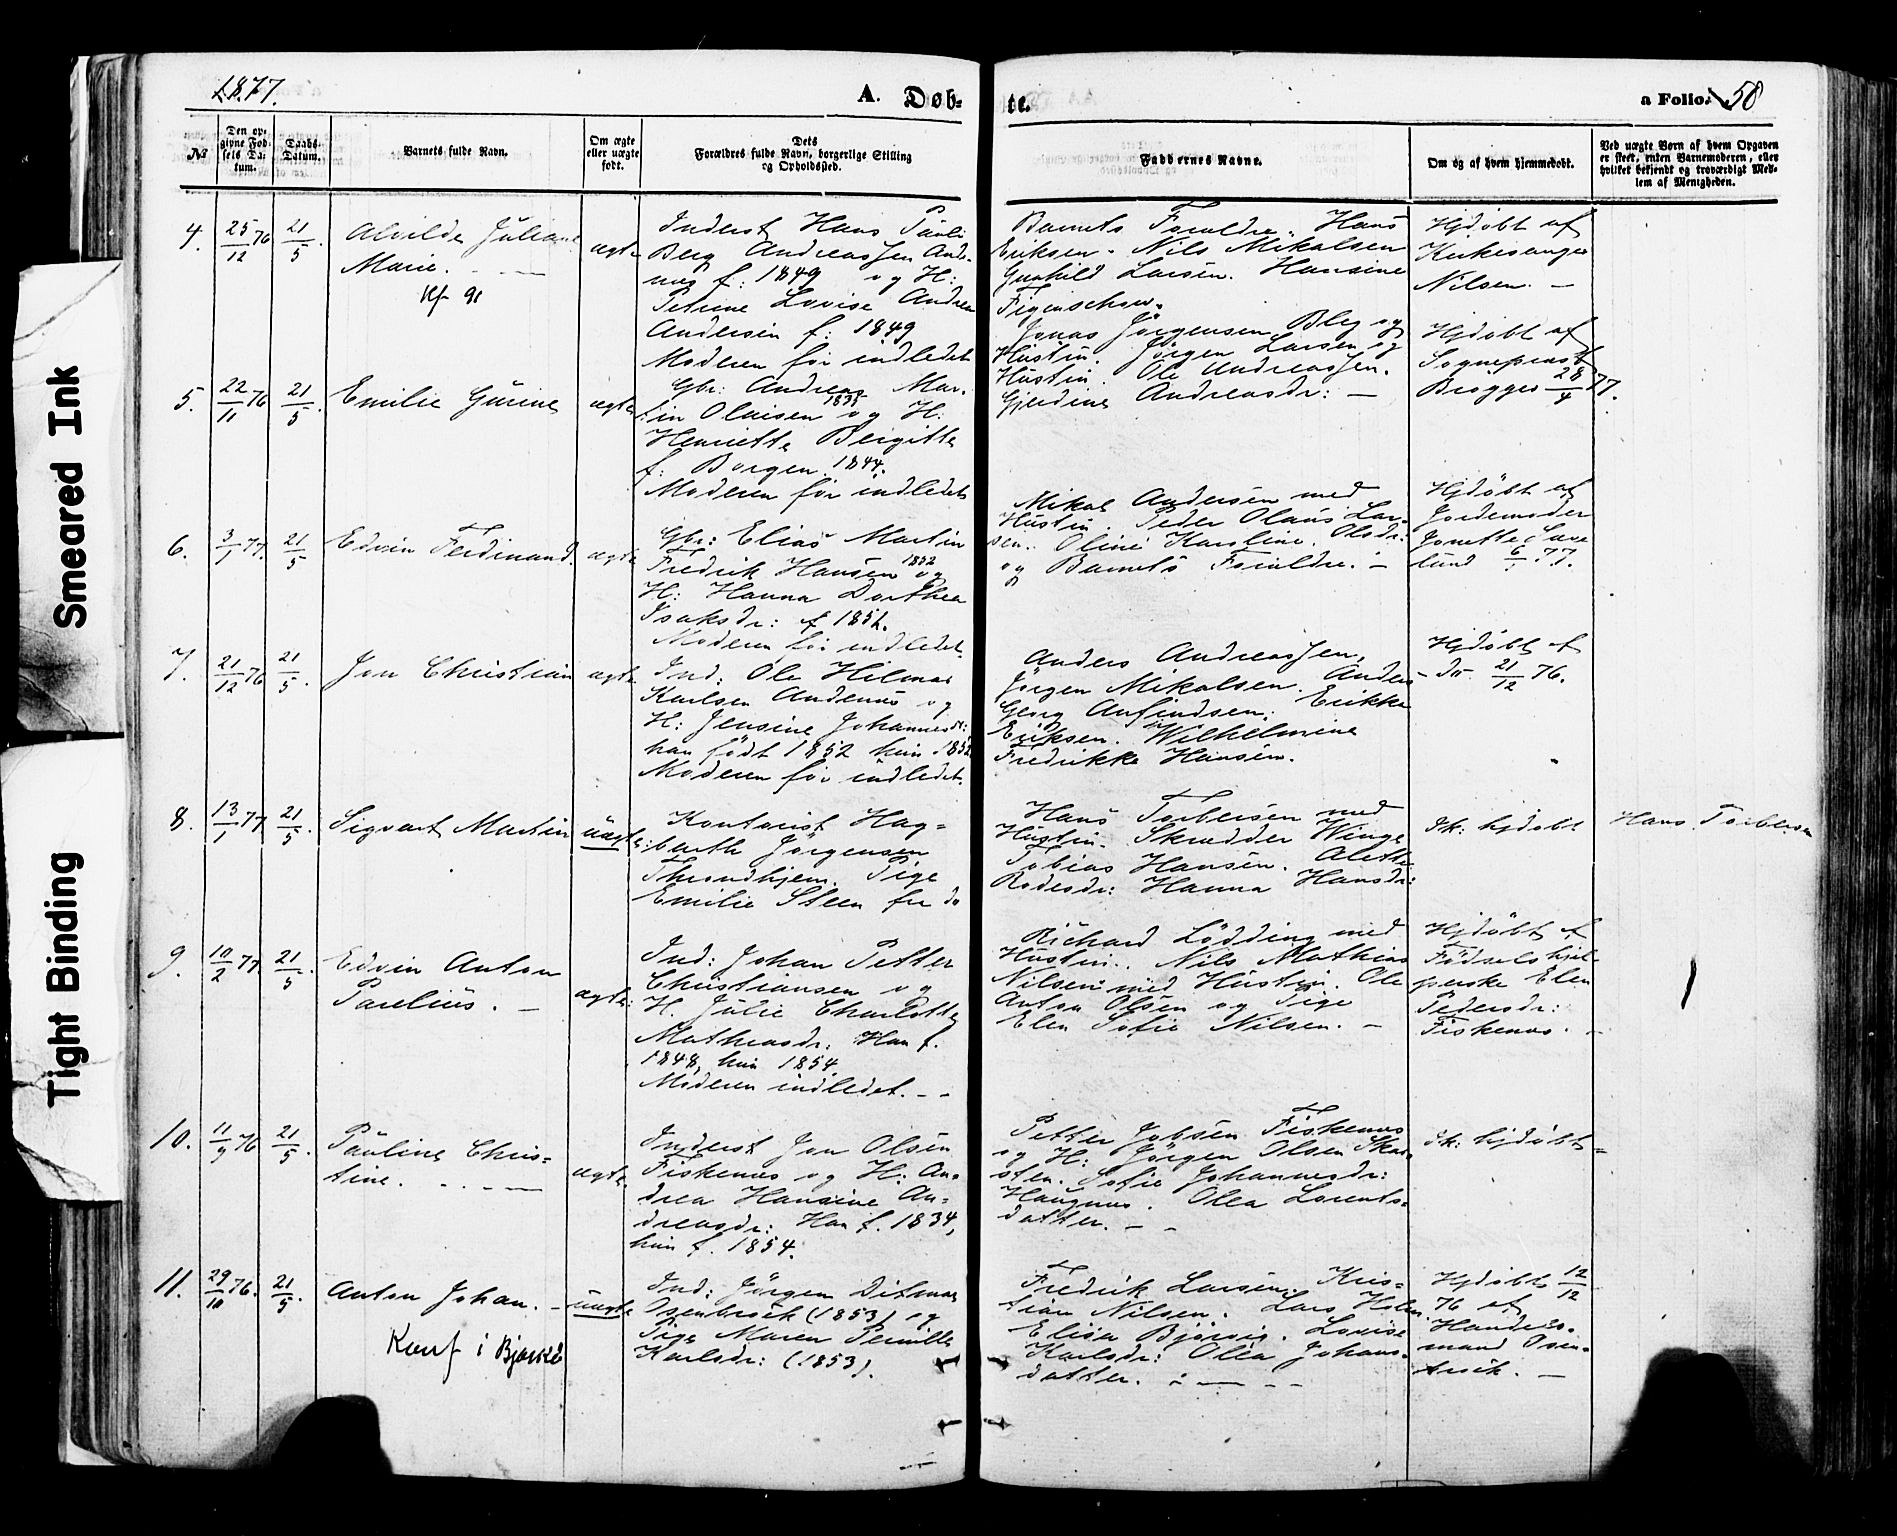 1877.
A. Døb-
te.
a Folio. 58
№
Den op-
givne Fød-
sels Da-
tum.
Daabs-
Datum.
Barnets fulde Navn.
Om ægte
eller uægte
født.
Dets
Forældres fulde Navn, borgerlige Stilling
og Opholdssted.
Faddernes Navne.
Om og af hvem hjemmedøbt.
Ved uægte Børn af hvem Opgaven
er skeet, enten Barnemoderen, eller
hvilket bekjendt og troværdigt Med-
lem af Menigheden.
Smeared Ink
Tight Binding
4.
25/12 76
21/5.
Alvilda Juliane
Marie. - —
Kf 91
ægte
Inderst Hans Pauli
Berg Andreassen Ande-
næs f: 1849 og H:
Petrine Lovise Andrea
Andersen f: 1849
Moderen før indledet
Barnets Forældre. Hans
Eriksen. Nils Mikalsen
Gunhild Larsen. Hansine
Figenschou.
Hjdøbt af
Kirkesanger
Nilsen. —
5.
22/11 76
21/5.
Emilie Gurine
ægte
Gbr: Andreas Mar-
tin Olaisen 1835 og H:
Henriette Bergitte
f: Borgen 1844.
Moderen før indledet
Jonas Jörgensen Bleg og
Hustru. Jörgen Larsen og
Hustru. Ole Andreassen.
Gjerdine Andreasdr: —
Hjdøbt af
Sogneprest
Brogger 28/4 77.
6.
3/1 77.
21/5
Edvin Ferdinand.
ægte
Gbr: Elias Martin
Fredrik Hansen 1852 og
H: Hanna Dorthea
Isaksdr: f 1852.
Moderen før indledet.
Mikal Andersen med
Hustru. Peder Olaus Lar-
sen. Oline Karoline Olsdr:
og Barnets Forældre. —
Hjdöbt af
Jordemoder
Jonette Save
lund 6/1 77.
7.
21/12 76
21/5.
Jon Christian
ægte
Ind: Ole Hilmar
Karlsen Andenæs og
H: Jensine Johannesdr:
han født 1852 hun 1852
Moderen før indledet.
Anders Andreassen,
Jörgen Mikalsen. Anders
Georg Anfindsen. Erikka
Eriksen. Wilhelmine
Fredrikke Hansen.
Hjdøbt af
- do. 21/12 76.
8.
13/1 77
21/5.
Sigvart Martin
uægte:
Kontorist Hag-
barth Jörgensen
Throndhjem. Pige
Emilie Steen fra do
Hans Torbersen med
Hustru. Skrædder Winge
Tobias Hansen. Alette
Rodesdr: Hanna Hansdr:
Ik: hjdøbt
Hans Torbersen
9.
10/2 77
21/5.
Edvin Anton
Parelius. —
ægte:
Ind: Johan Petter
Christiansen og
H. Julie Charlotte
Mathiasdr: Han f.
1848, hun 1854
Moderen indledet. - -
Richard Lödding med
Hustru. Nils Mathias
Nilsen med Hustru. Ole
Anton Olsen og Pige
Elen Sofie Nilsen. —
Hjdöbt af
Födselshjel-
perske Elen
Pedersdr:
Fiskenæs. -
10.
11/9 76
21/5.
Pauline Chris-
tine. - - - —
ægte.
Inderst Jon Olsen
Fiskenæs og H: An-
drea Hansine An-
dreasdr: Han f. 1834,
hun f. 1854.
Petter Jobsen Fiskenæs
og H: Jörgen Olsen Skar-
sten. Sofie Johannesdr:
Haugnæs. Olea Lorents-
datter. - -
Ik: hjdöbt -
11.
29/10 76.
21/5.
Anton Johan. -
Konf i Bjarkö
uægte
Ind: Jörgen Ditmar
Osenbroch (1853) og
Pige Maren Pernille
Karlsdr: (1853).
Fredrik Larsen. Kris-
tian Nilsen. Lars Holm
Elisa Bjorvig. Lovise
Karlsdr: Olea Johans-
datter. - — - -
Hjdöbt 12/12
76 af
Handels-
mand Osen-
broch. —